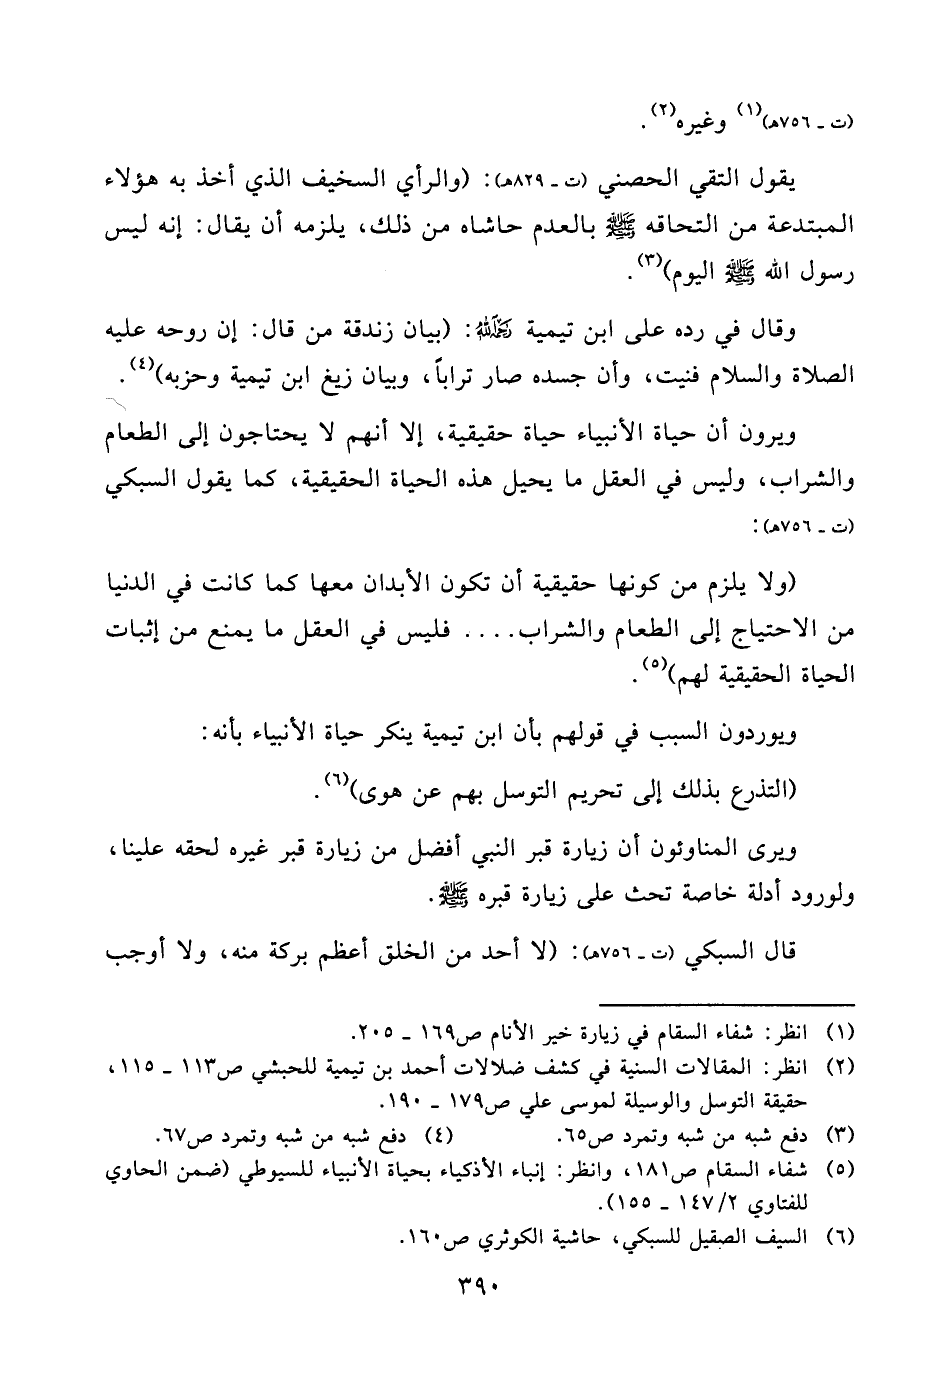 (ت ـ ٧٥٦هـ)(١) وغيره(٢).
يقول التقي الحصني (ت ـ ٨٢٩هـ): (والرأي السخيف الذي أخذ به هؤلاء
المبتدعة من التحاقه ﷺ بالعدم حاشاه من ذلك، يلزمه أن يقال: إنه ليس
رسول الله ﷺ اليوم)(٣).
وقال في رده على ابن تيمية رحمه الله: (بيان زندقة من قال: إن روحه عليه
الصلاة والسلام فنيت، وأن جسده صار تراباً، وبيان زيغ ابن تيمية وحزبه)(٤).
ويرون أن حياة الأنبياء حياة حقيقية، إلا أنهم لا يحتاجون إلى الطعام
والشراب، وليس في العقل ما يحيل هذه الحياة الحقيقية، كما يقول السبكي
(ت ـ ٧٥٦هـ):
(ولا يلزم من كونها حقيقية أن تكون الأبدان معها كما كانت في الدنيا
من الاحتياج إلى الطعام والشراب.... فليس في العقل ما يمنع من إثبات
الحياة الحقيقية لهم)(٥).
ويوردون السبب في قولهم بأن ابن تيمية ينكر حياة الأنبياء بأنه:
(التذرع بذلك إلى تحريم التوسل بهم عن هوى)(٦).
ويرى المناوئون أن زيارة قبر النبي أفضل من زيارة قبر غيره لحقه علينا،
ولورود أدلة خاصة تحث على زيارة قبره ﷺ.
قال السبكي (ت ـ ٧٥٦هـ): (لا أحد من الخلق أعظم بركة منه، ولا أوجب
(١) انظر: شفاء السقام في زيارة خير الأنام ص١٦٩ ـ ٢٠٥.
(٢) انظر: المقالات السنية في كشف ضلالات أحمد بن تيمية للحبشي ص١١٣ ـ ١١٥،
حقيقة التوسل والوسيلة لموسى علي ص١٧٩ ـ ١٩٠.
(٣) دفع شبه من شبه وتمرد ص٦٥. (٤) دفع شبه من شبه وتمرد ص٦٧.
(٥) شفاء السقام ص١٨١، وانظر: إنباء الأذكياء بحياة الأنبياء للسيوطي (ضمن الحاوي
للفتاوي ١٤٧/٢ ـ ١٥٥).
(٦) السيف الصقيل للسبكي، حاشية الكوثري ص١٦٠.
٣٩٠